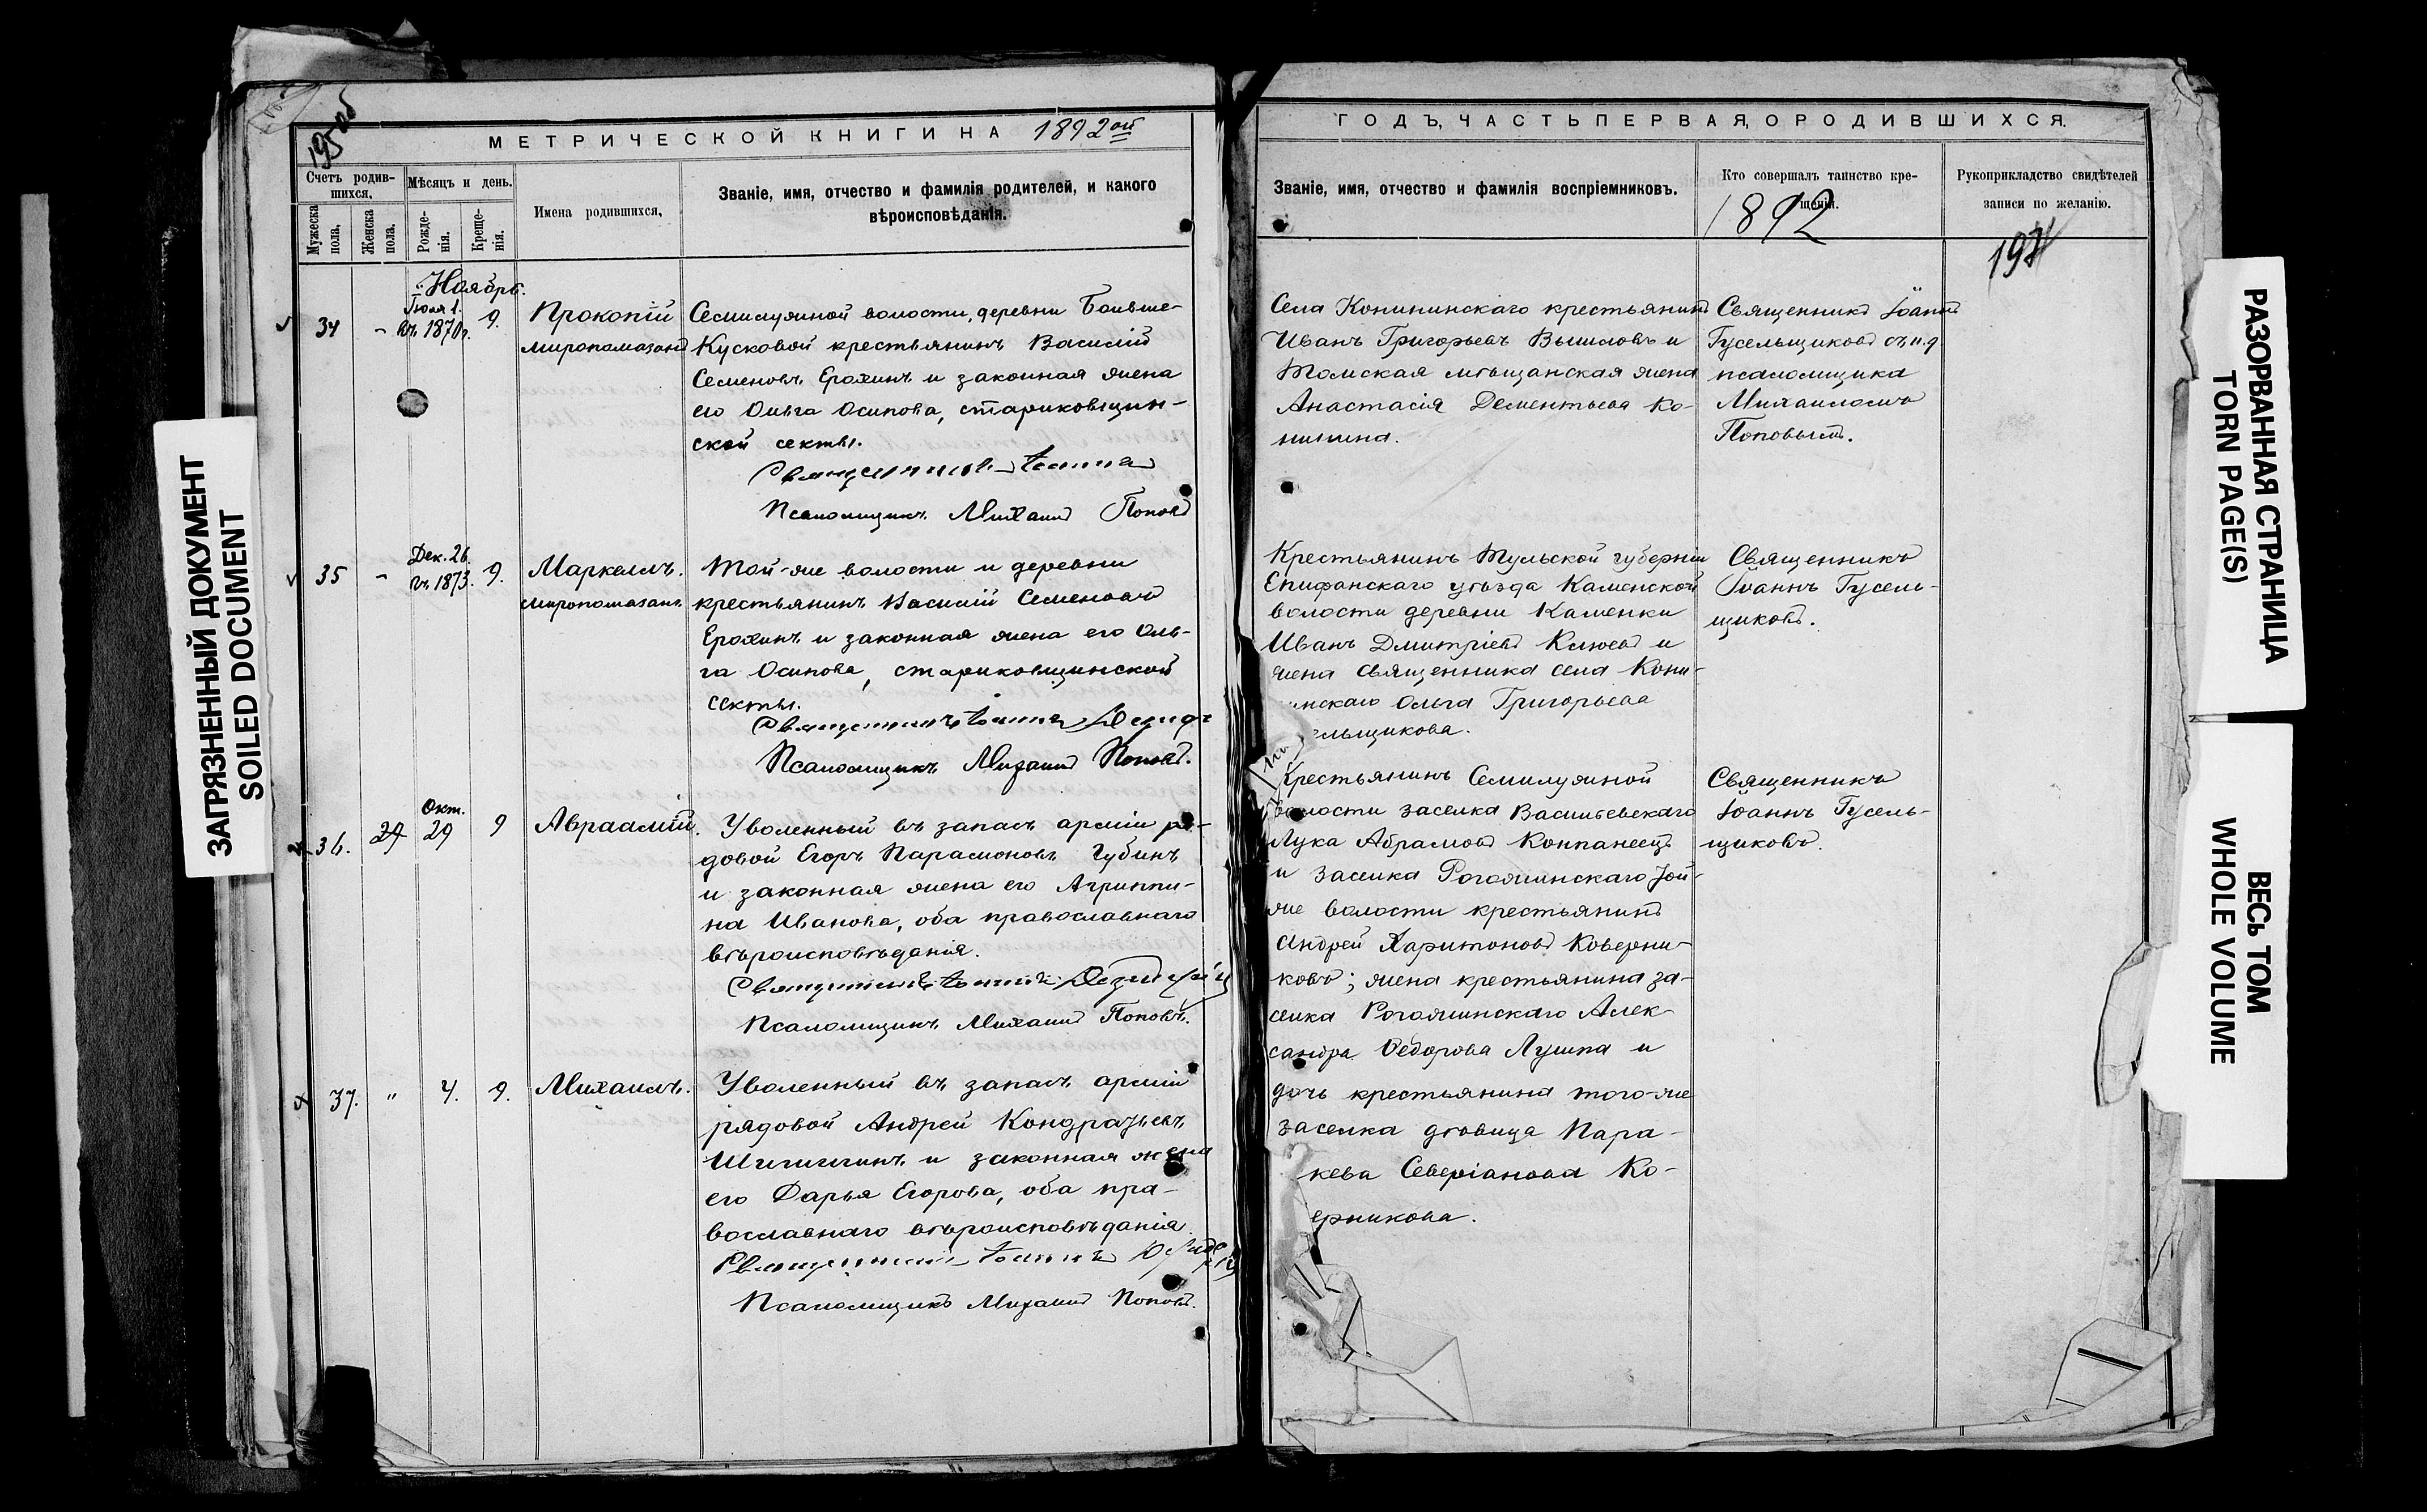 195 об
МЕТРИЧЕСКОЙ КНИГИ НА 1892ой
Счетъ родив-
шихся,
Мѣсяцъ и день.
Имена родившихся,
Званіе, имя, отчество и фамилія родителей, и какого
вѣроисповѣданія.
Мужеска
пола,
Женска
пола.
Рожде-
нія.
Креще-
нія.
Ноябрь.
34
-
Іюля 1.
въ 1870 г.
9.
Прокопій
миропомазанъ
Семилужной волости, деревни Больше-
Кусковой крестьянинъ Василій
Семеновъ Ерохинъ и законная жена
его Ольга Осипова, стариковщин-
ской секты.
Священникъ Іоаннъ
Псаломщикъ Михаилъ Поповъ
35
-
Дек. 26.
въ 1873.
9.
Маркеллъ.
миропомазанъ.
Той-же волости и деревни
крестьянинъ Василій Семеновъ
Ерохинъ и законная жена его Оль-
га Осипова, стариковщинской
секты.
Священникъ Іоаннъ
Псаломщикъ Михаилъ Поповъ.
36.
29
Окт.
29
9
Авраамій.
Уволенный въ запасъ арміи ря-
довой Егоръ Парамоновъ Губинъ
и законная жена его Агриппи-
на Иванова, оба православнаго
вѣроисповѣданія.
Священникъ Іоаннъ
Псаломщикъ Михаилъ Поповъ.
37.
"
4.
9.
Михаилъ.
Уволенный въ запасъ арміи
рядовой Андрей Кондратьевъ
и законная жена
его Дарья Егорова, оба пра-
вославнаго вѣроисповѣданія.
Священникъ Іоаннъ
Псаломщикъ Михаилъ Поповъ.
ГОДЪ, ЧАСТЬ ПЕРВАЯ, О РОДИВШИХСЯ.
Званіе, имя, отчество и фамилія воспріемниковъ.
Кто совершалъ таинство кре-
щенія.
1892
Рукоприкладство свидѣтелей
записи по желанію.
197
Села Конининскаго крестьянинъ
Иванъ Григорьевъ Вышловъ и
Томская мѣщанская жена
Анастасія Дементьева Ко-
нинина.
Священникъ Іоаннъ
Гусельщиковъ съ и. д.
псаломщика
Михаиломъ
Поповымъ.
Крестьянинъ Тульской губерніи
Епифанскаго уѣзда Каменской
волости деревни Каменки
Иванъ Дмитріевъ Клюевъ и
жена священника села Кони-
инскаго Ольга Григорьева
ельщикова.
Священникъ
Іоаннъ Гусель-
щиковъ.
Крестьянинъ Семилужной
волости заселка Васильевскаго
Лука Абрамовъ Компанеецъ
и заселка Рогожинскаго той-
же волости крестьянинъ
Андрей Харитоновъ Коверни-
ковъ; жена крестьянина за-
селка Рогожинскаго Алек-
сандра Ѳедорова Лушпа и
дочь крестьянина того-же
заселка дѣвица Пара-
кева Северіанова Ко-
ерникова.
Священникъ
Іоаннъ Гусель-
щиковъ.
ЗАГРЯЗНЕННЫЙ ДОКУМЕНТ
SOILED DOCUMENT
РАЗОРВАННАЯ СТРАНИЦА
TORN PAGE(S)
ВЕСЬ ТОМ
WHOLE VOLUME